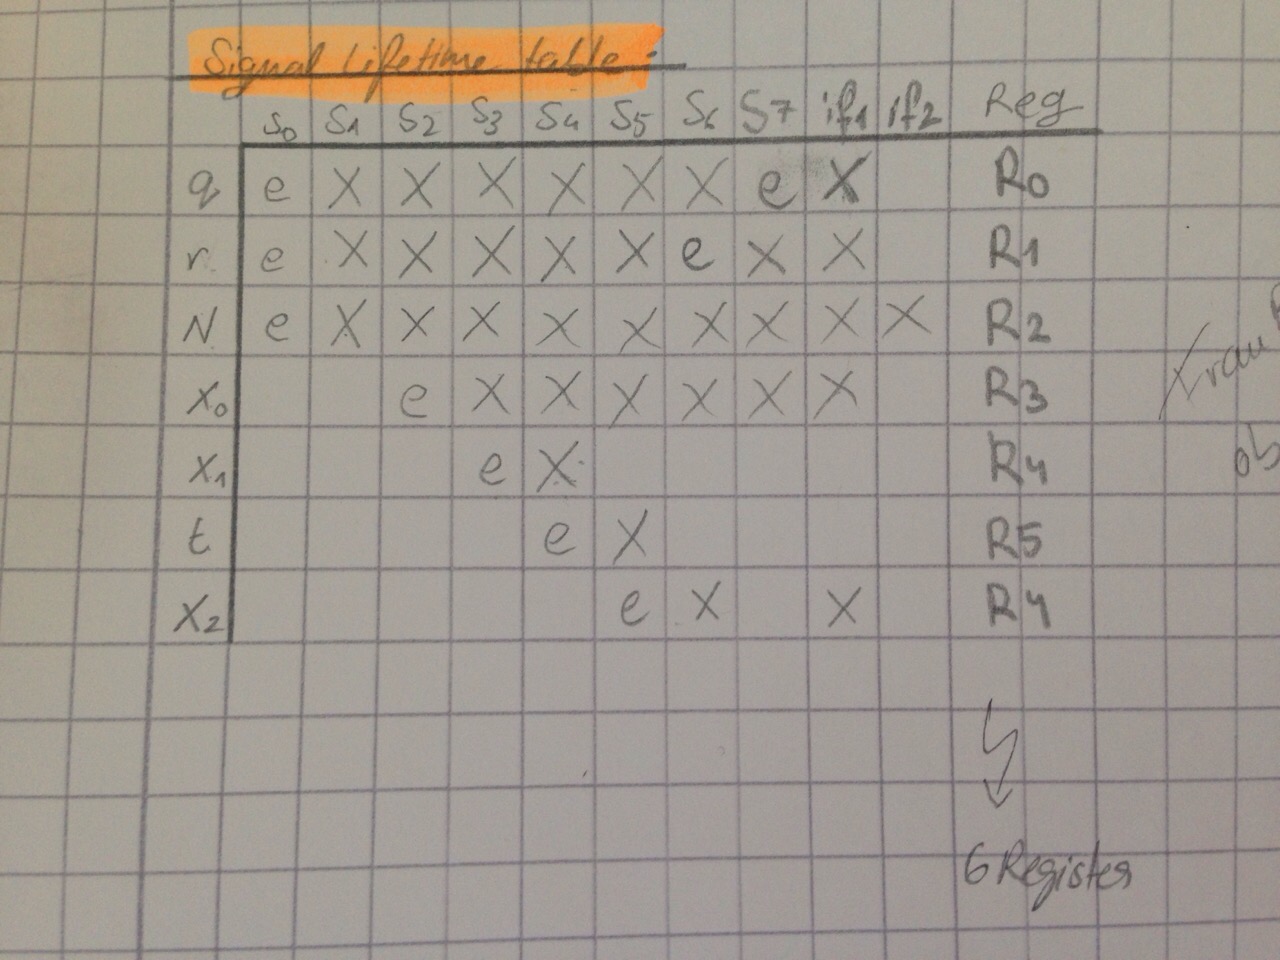 Signal Lifetime table:
S0 S1 S2 S3 S4 S5 S6 S7 if1 if2 Reg
q e X X X X X X e X R0
r e X X X X X e X X R1
N e X X X X X X X X X R2
X0 e X X X X X X R3
X1 e X R4
t e X R5
X2 e X X R4
6 Register